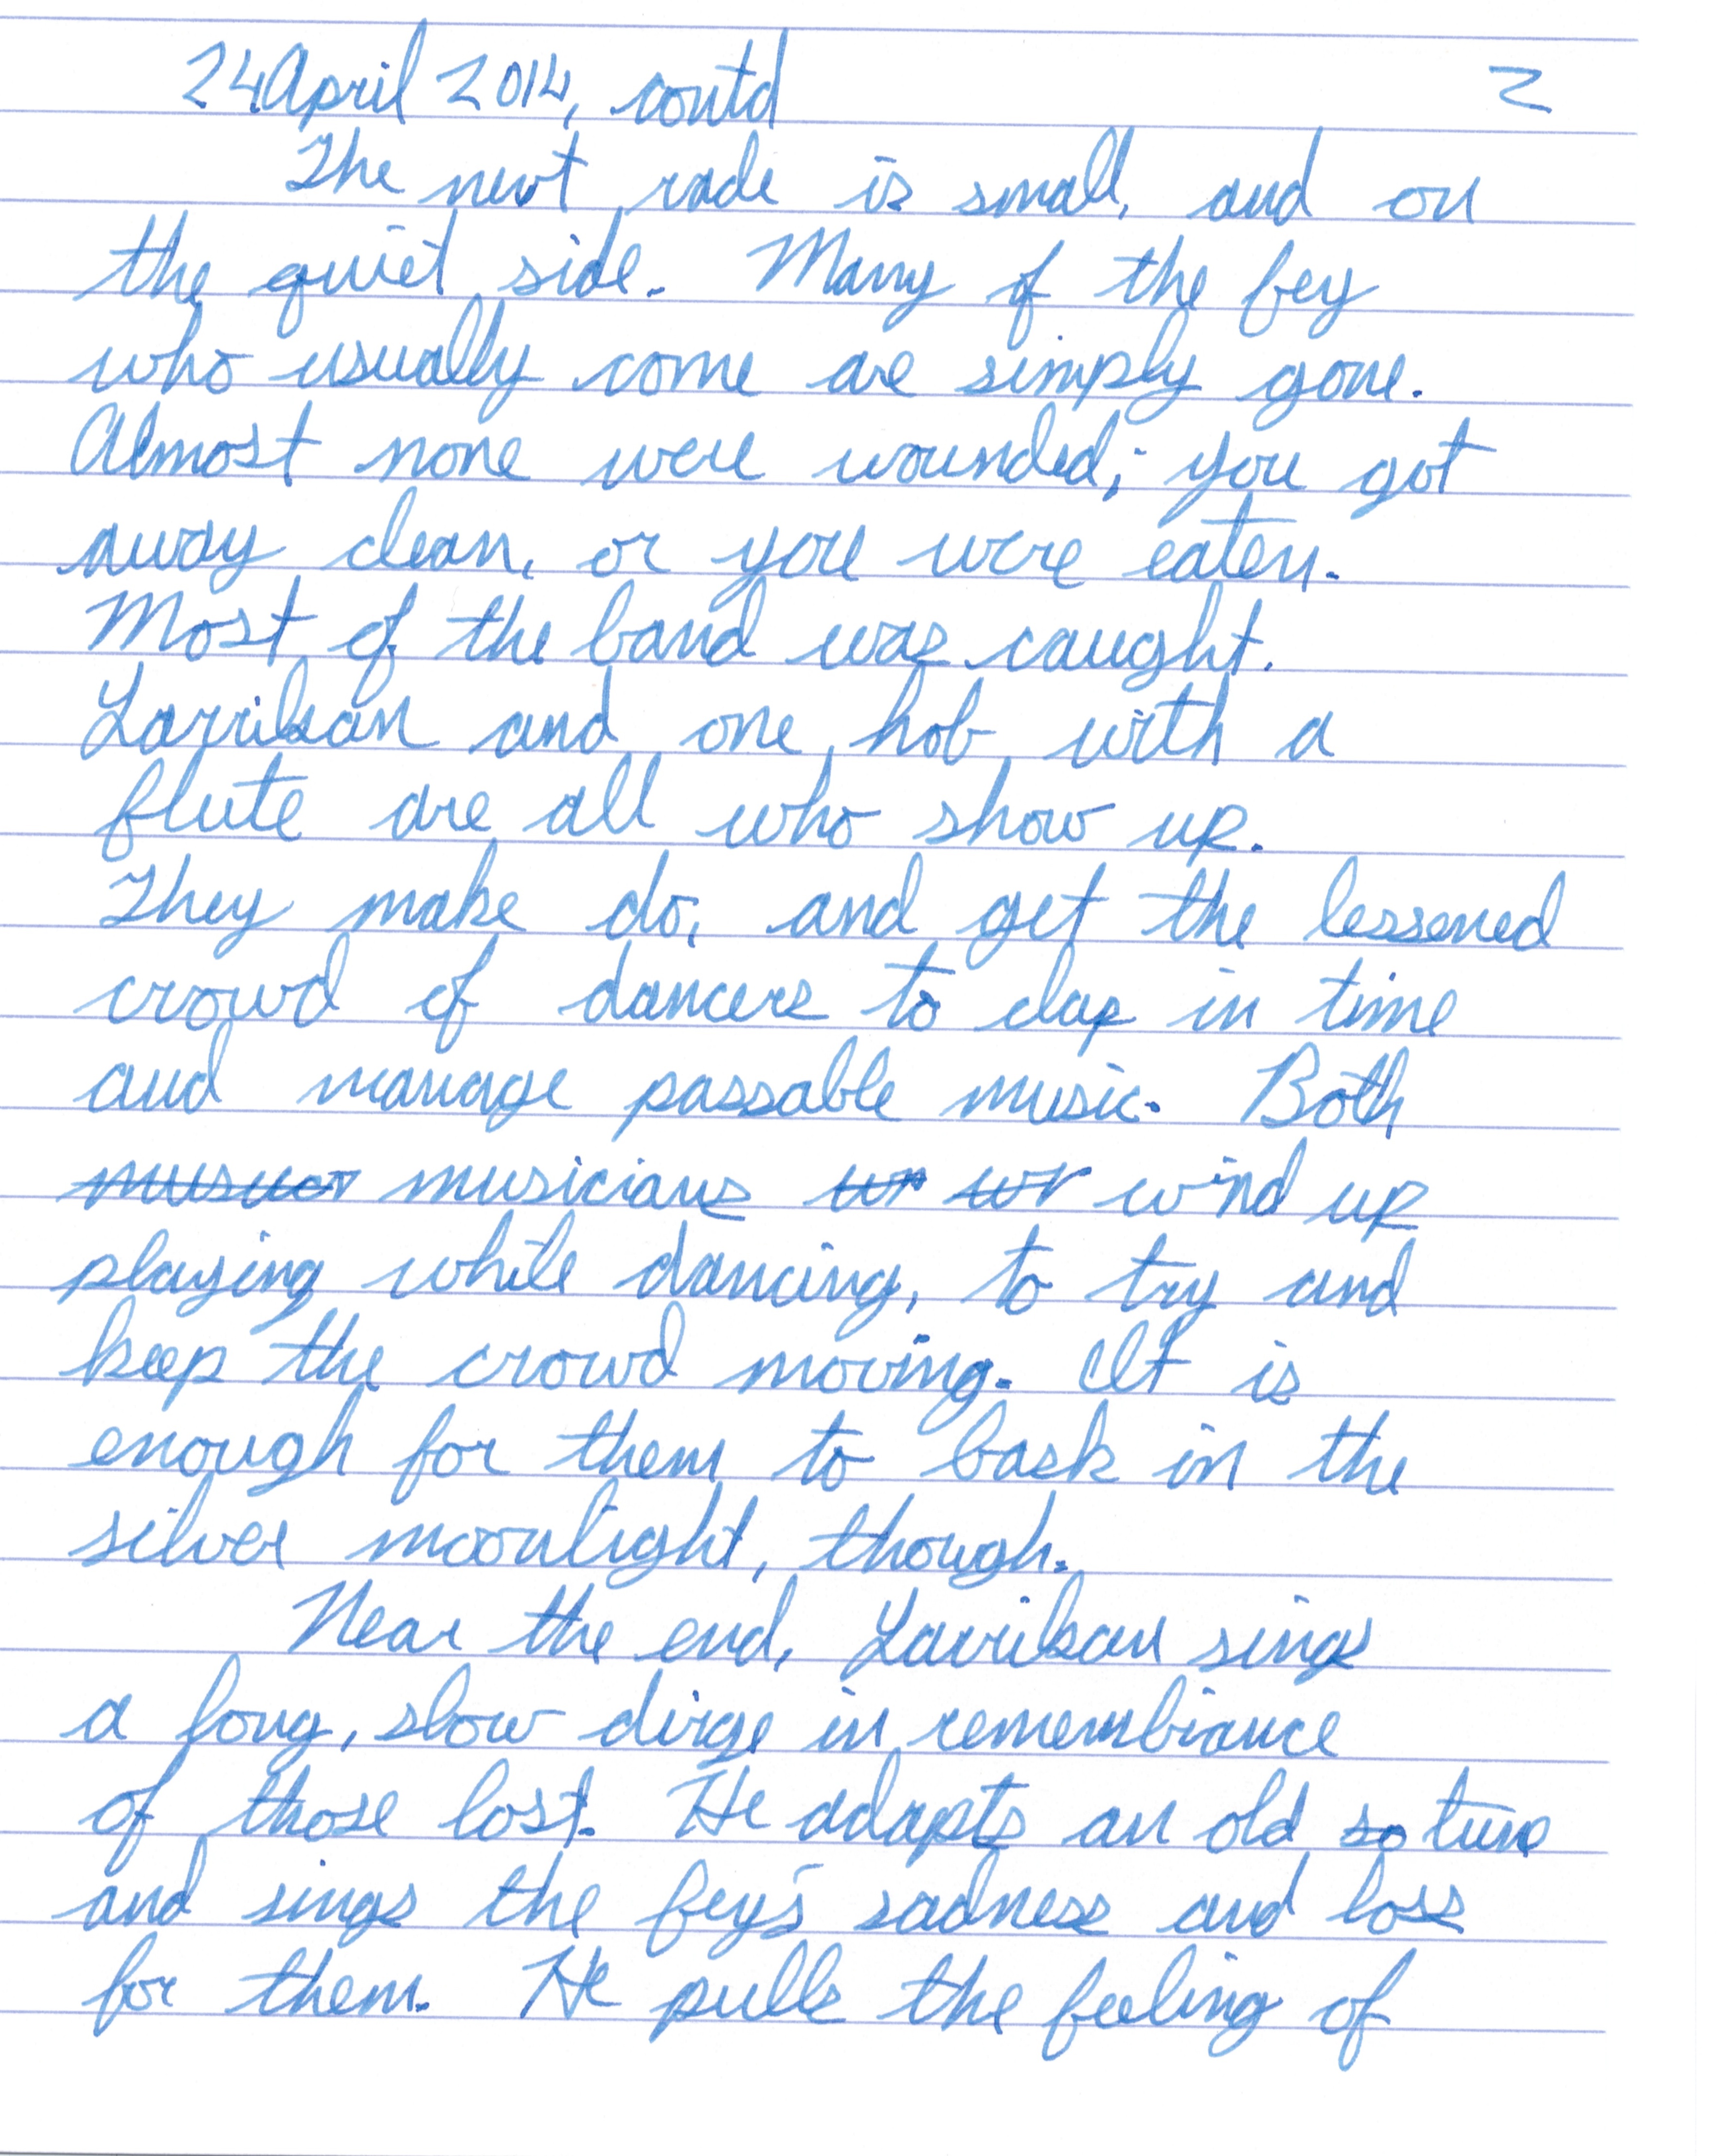 24 April 2014, contd 2
The next rade is small, and on
the quiet side. Many of the fey
who usually come are simply gone.
Almost none were wounded; you got
away clean, or you were eaten.
Most of the band was caught.
Larrikan and one hob with a
flute are all who show up.
They make do, and get the lessened
crowd of dancers to clap in time
and manage passable music. Both
musicians wind up
playing while dancing, to try and
keep the crowd moving. It is
enough for them to bask in the
silver moonlight, though.
Near the end, Larrikan sings
a long, slow dirge in remembrance
of those lost. He adapts an old so tune
and sings the fey's sadness and loss
for them. He pulls the feeling of